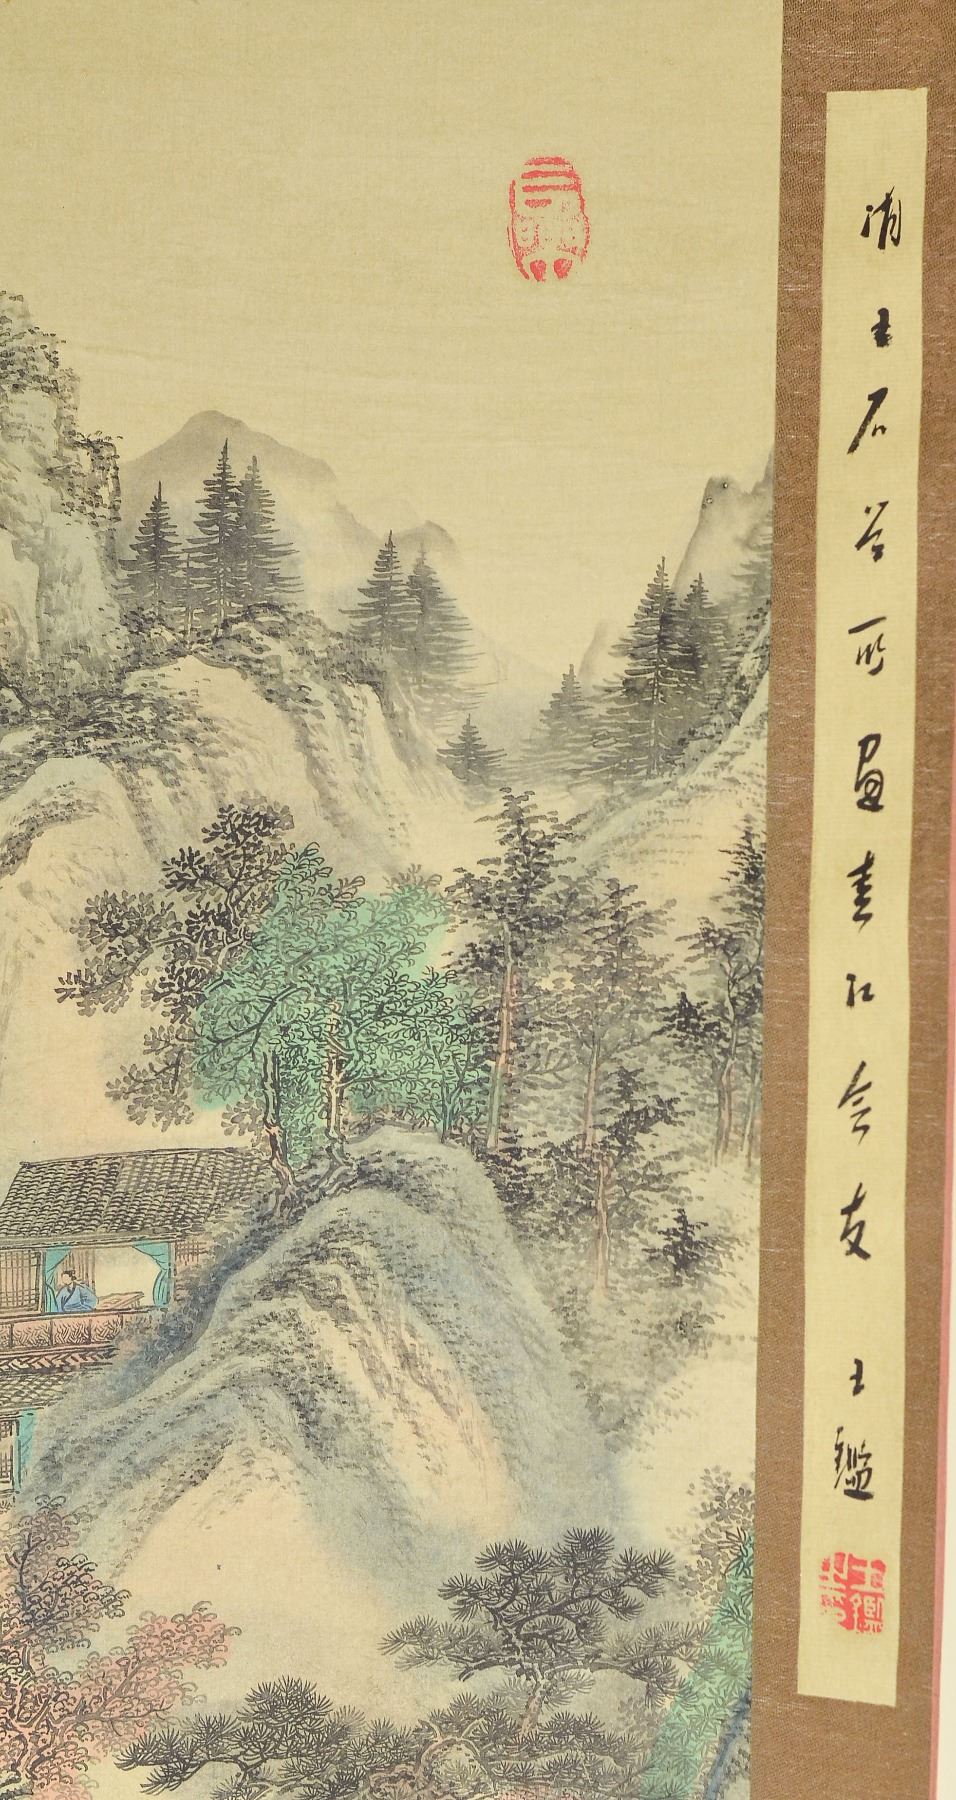 清王石谷所畫春江会友 王鑑